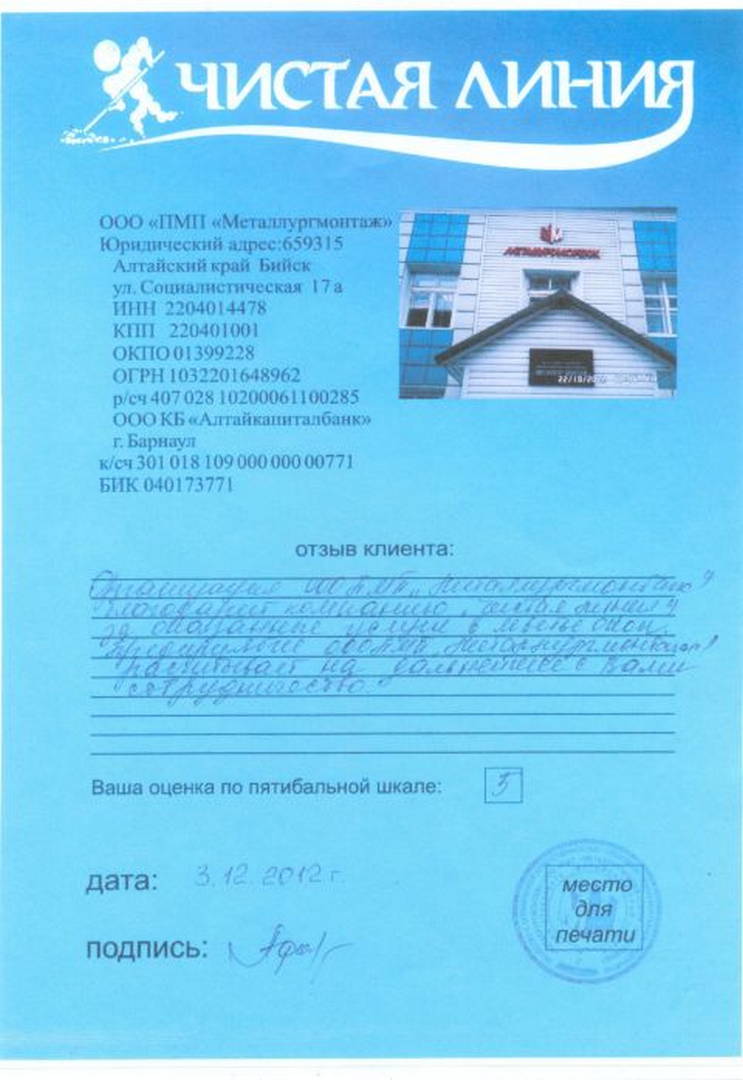 ЧИСТАЯ ЛИНИЯ
ООО «ПМП «Металлургмонтаж»
Юридический адрес:659315
Алтайский край Бийск
ул. Социалистическая 17а
ИНН 2204014478
КПП 220401001
ОКПО 01399228
ОГРН 1032201648962
р/сч 407 028 10200061100285
ООО КБ «Алтайкапиталбанк»
г. Барнаул
к/сч 301 018 109 000 000 00771
БИК 040173771
отзыв клиента:
Организация ООО ПМП „Металлургмонтаж"
благодарит компанию „Чистая линия"
за оказанные услуги
ООО ПМП „Металлургмонтаж"
рассчитывает на дальнейшее с Вами
сотрудничество.
Ваша оценка по пятибальной шкале: 5
дата: 3.12.2012 г.
место
для
печати
подпись: